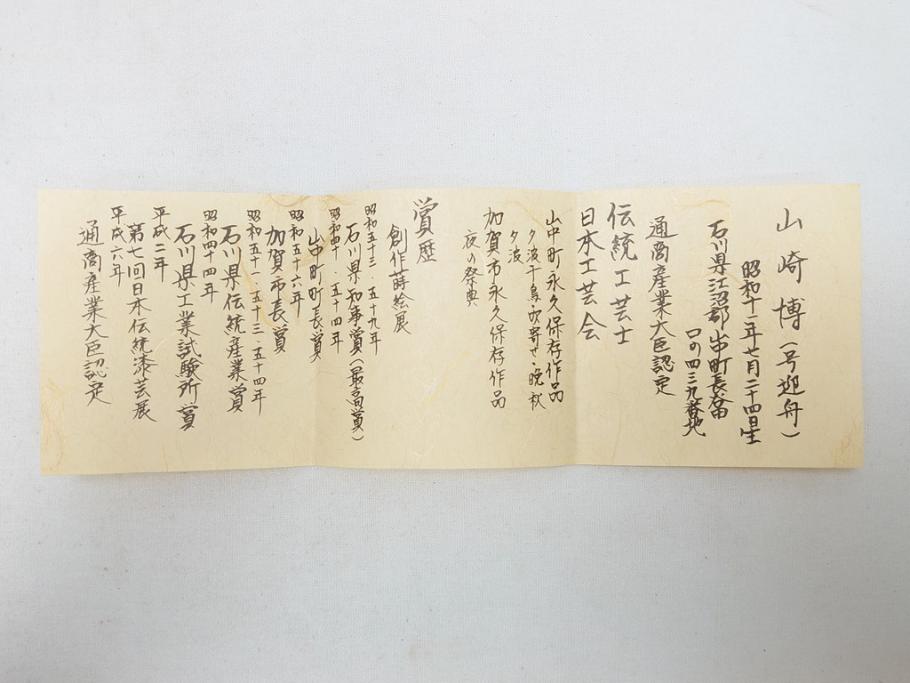 山崎博(号迎舟)
昭和十一年七月二十四日生
石川県江沼郡山中町長谷田
口の四三九番地
通商産業大臣認定
伝統工芸士
日本工芸会
山中町永久保存作品
夕波千鳥・吹寄せ・晩秋
夕波
加賀市永久保存作品
夜の祭典
賞歴
創作蒔絵展
昭和五十三・五十九年
石川県知事賞(最高賞)
昭和四十・五十四年
山中町町長賞
昭和五十六年
加賀市長賞
昭和五十一・五十三・五十四年
石川県伝統産業賞
昭和四十四年
石川県工業試験所賞
平成二年
第七回日本伝統漆芸展
平成六年
通商産業大臣認定